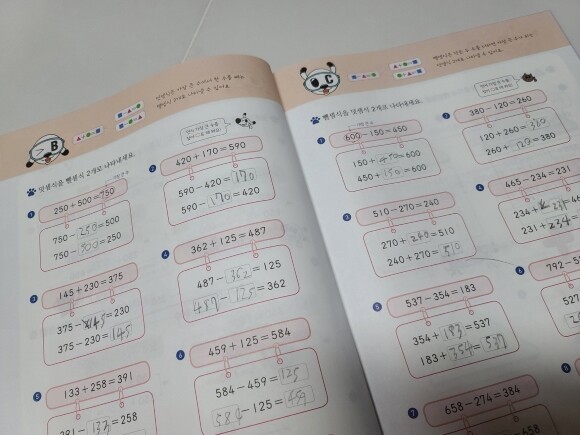 B
덧셈식을 뺄셈식 2개로 나타내세요.
1
250+500=750
750-250=500
750-500=250
2
420+170=590
590-420=170
590-170=420
3
145+230=375
375-145=230
375-230=145
4
362+125=487
487-362=125
487-125=362
5
133+258=391
391-133=258
6
459+125=584
584-459=125
584-125=459
C
뺄셈식을 덧셈식 2개로 나타내세요.
1
600-150=450
150+450=600
450+150=600
2
380-120=260
120+260=380
260+120=380
3
510-270=240
270+240=510
240+270=510
4
465-234=231
234+231=46
231+234=
5
537-354=183
354+183=537
183+354=537
6
792-5
527
7
658-274=384
=658